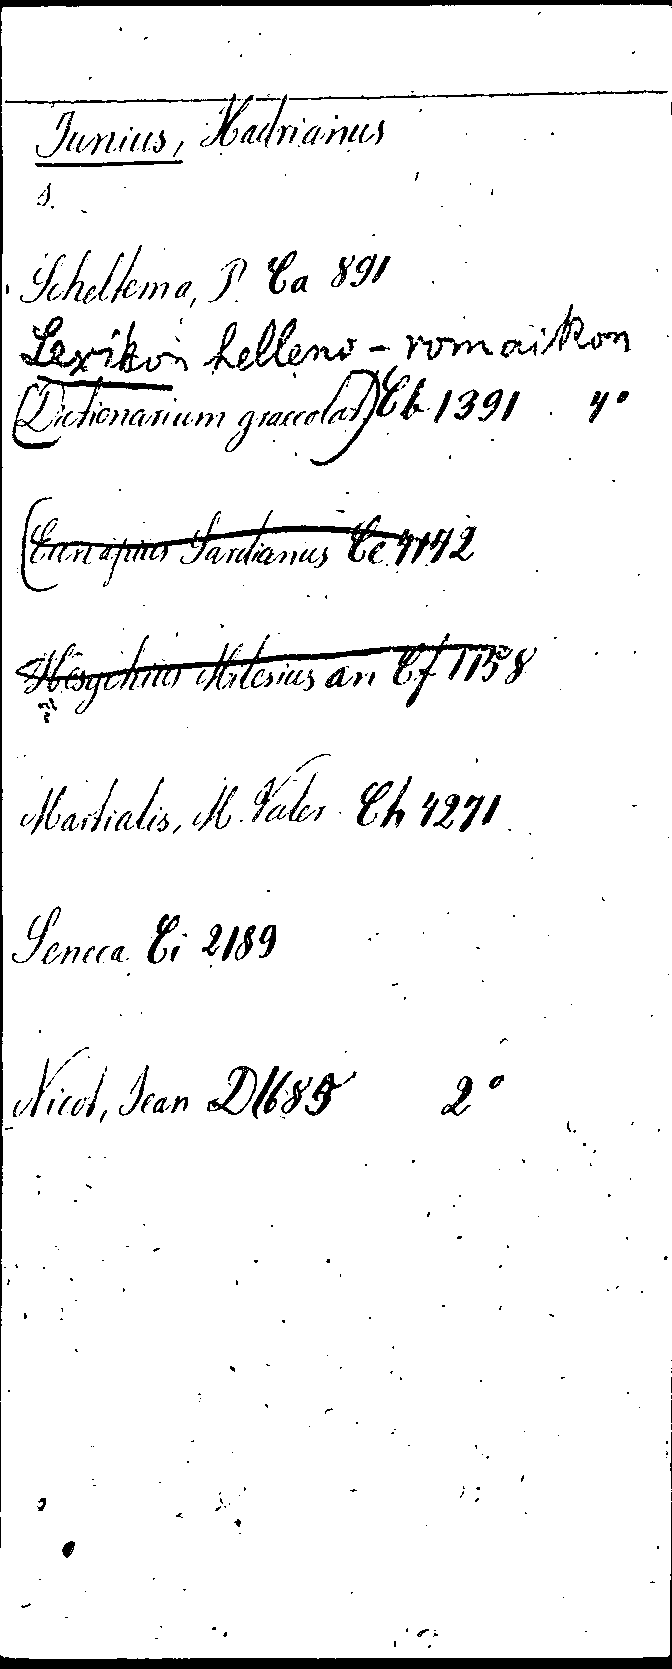 Junius, Hadrianus
s.
Scheltema, P. Ca 891
Lexikon helleno-romaikon
(Dictionarium graecolat) Cb 1391 4°
(Eunapius Sardianus Ce 4142
Hesychius Milesius an Cf 1158
Martialis, M. Valer. Ch 4271
Seneca Ci 2189
Nicot, Jean D 1685 2°